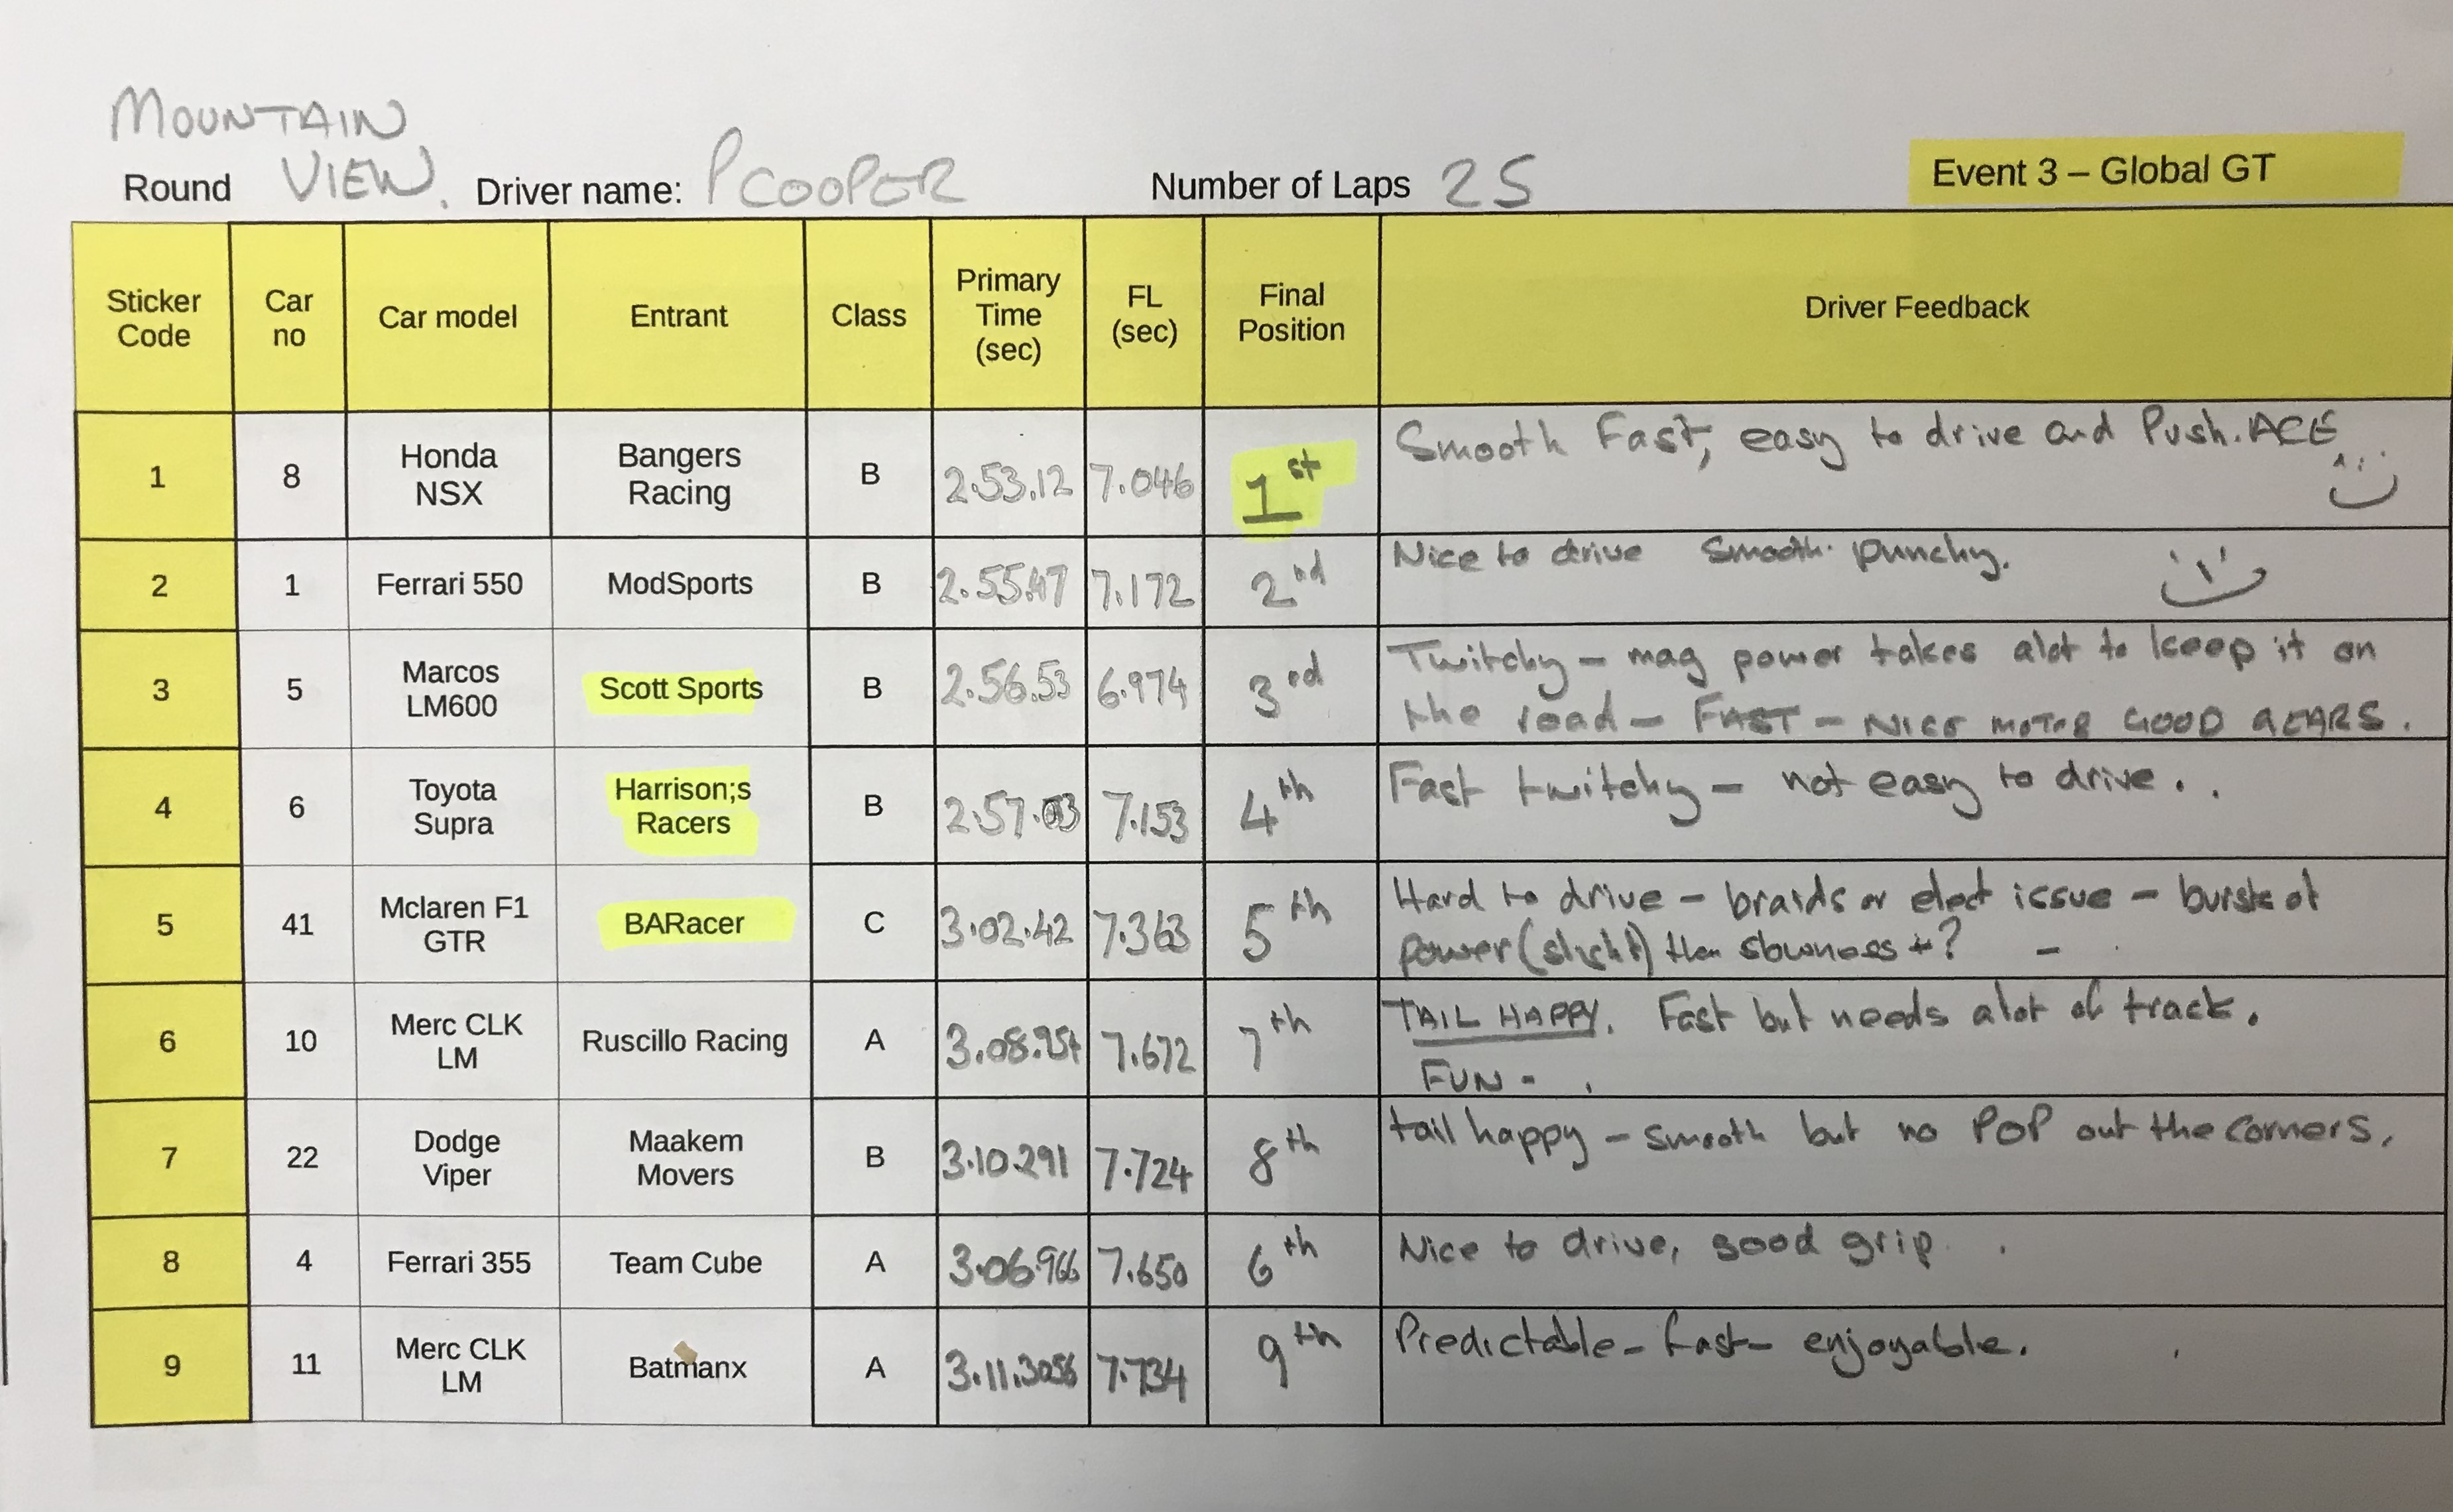 MOUNTAIN
Round VIEW. Driver name: P COOPER Number of Laps 25 Event 3 – Global GT
Sticker Code Car no Car model Entrant Class Primary Time (sec) FL (sec) Final Position Driver Feedback
1 8 Honda NSX Bangers Racing B 2.53.12 7.046 1st Smooth Fast, easy to drive and Push. ACE
2 1 Ferrari 550 ModSports B 2.55.47 7.172 2nd Nice to drive Smooth. punchy.
3 5 Marcos LM600 Scott Sports B 2.56.53 6.974 3rd Twitchy – mag power takes alot to keep it on
the road – FAST – NICE MOTOR GOOD GEARS.
4 6 Toyota Supra Harrison;s Racers B 2.57.03 7.153 4th Fast twitchy – not easy to drive..
5 41 Mclaren F1 GTR BARacer C 3.02.42 7.363 5th Hard to drive – braids or elect issue – bursts of
power (slight) then slowness +? –
6 10 Merc CLK LM Ruscillo Racing A 7.672 7th TAIL HAPPY. Fast but needs alot of track.
FUN -
7 22 Dodge Viper Maakem Movers B 3.10.291 7.724 8th tail happy – smooth but no POP out the corners.
8 4 Ferrari 355 Team Cube A 3.06.966 7.650 6th Nice to drive, good grip.
9 11 Merc CLK LM Batmanx A 7.734 9th Predictable – fast – enjoyable.